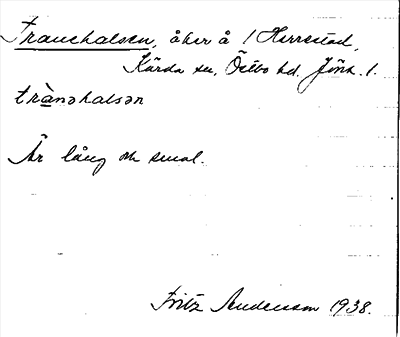 Tranehalsen, åker å 1 Herrestad,
Kärda sn, Östbo hd. Jönk. l.
trànəhalsən
Är lång och smal.
Fritz Andersson 1938.